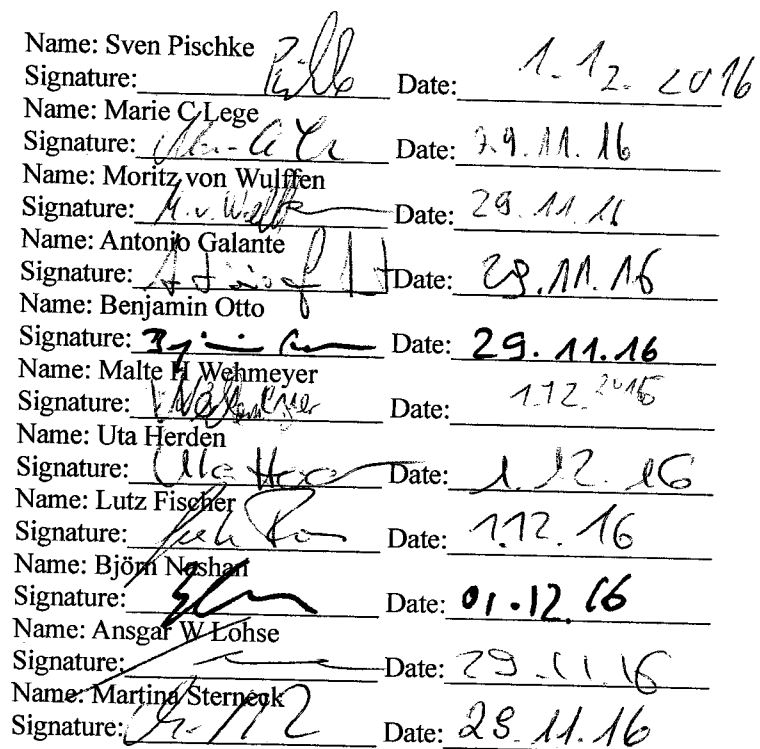 Name: Sven Pischke
Signature: Date: 1.12.2016
Name: Marie C Lege
Signature: Date: 29.11.16
Name: Moritz von Wulffen
Signature: M. v. Wulff Date: 29.11.16
Name: Antonio Galante
Signature: Date: 29.11.16
Name: Benjamin Otto
Signature: Date: 29.11.16
Name: Malte H Wehmeyer
Signature: Date: 1.12.2016
Name: Uta Herden
Signature: Uta Date: 1.12.16
Name: Lutz Fischer
Signature: Date: 1.12.16
Name: Björn Nashan
Signature: Date: 01.12.16
Name: Ansgar W Lohse
Signature: Date: 29.11.16
Name: Martina Sterneck
Signature: Date: 29.11.16